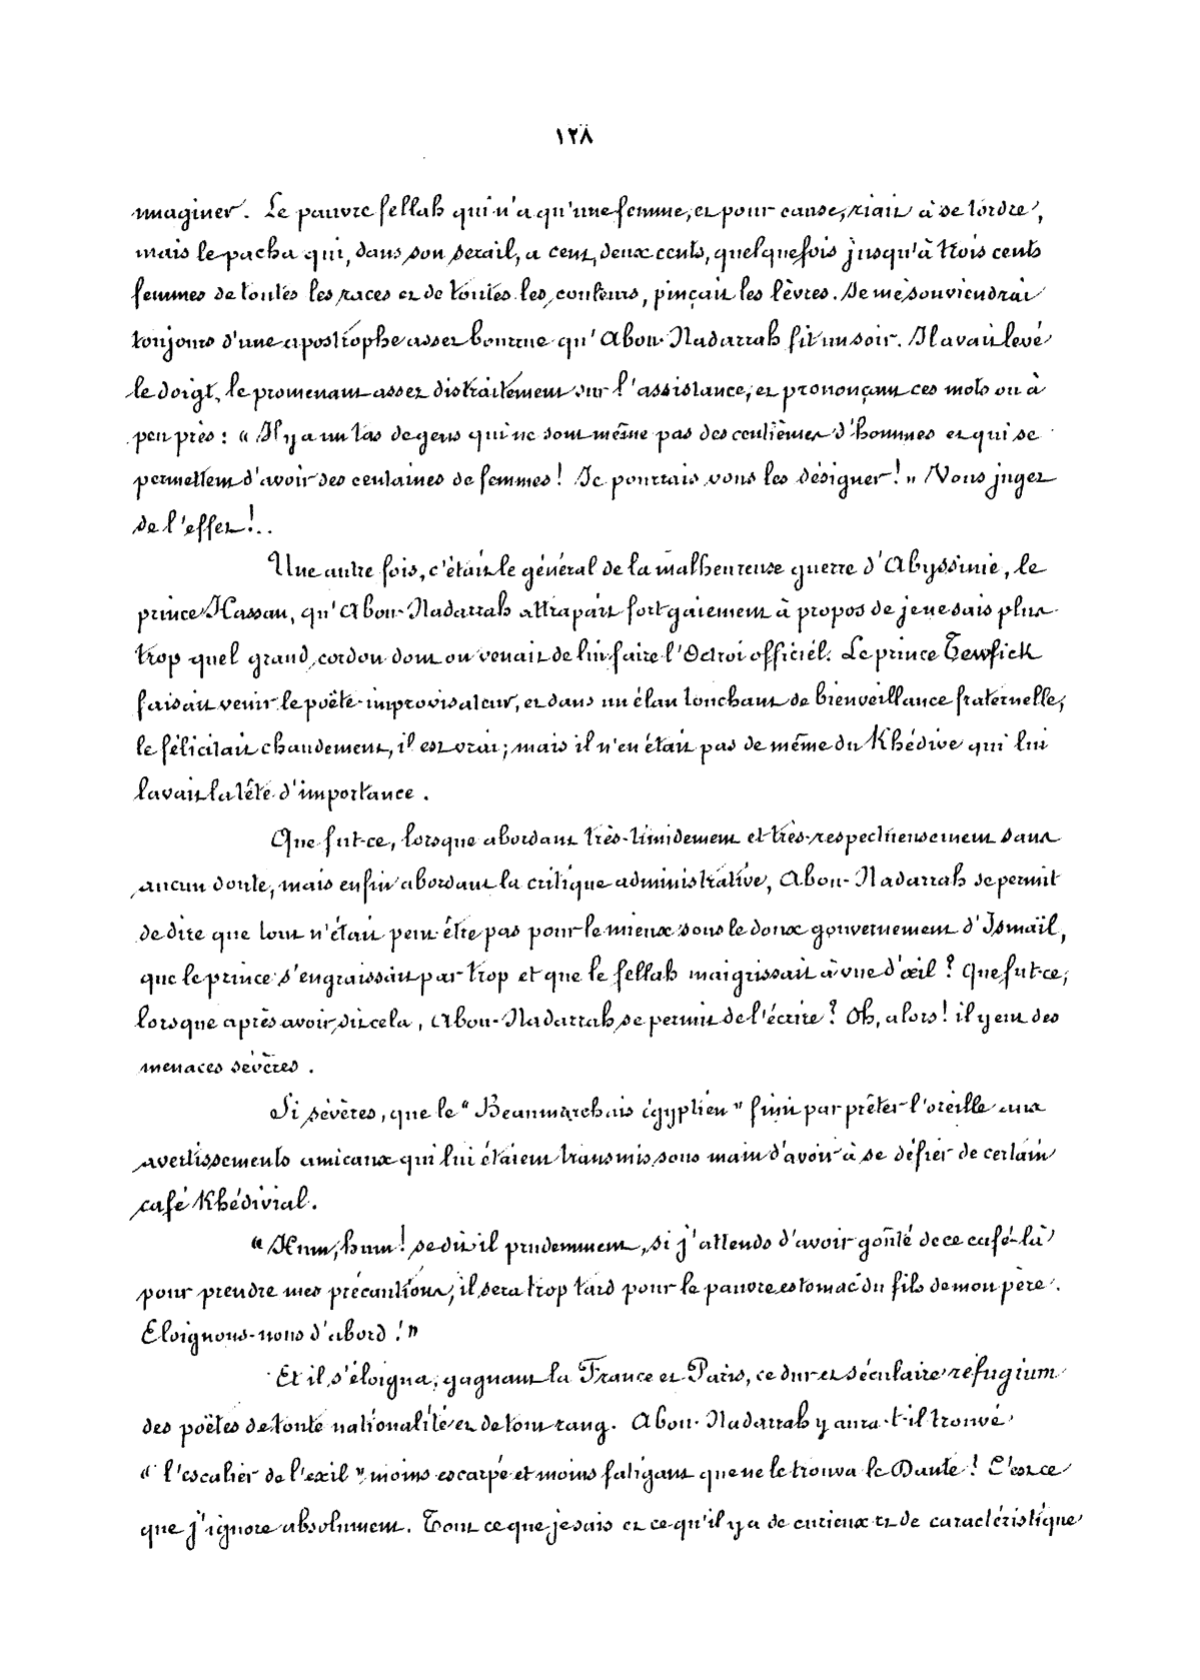 ١٢٨
imaginer. Le pauvre fellah qui n'a qu'une femme, et pour cause, riait à se tordre,
mais le pacha qui, dans son serail, a cent, deux cents, quelquefois jusqu'à trois cents
femmes de toutes les races et de toutes les couleurs, pinçait les lèvres. Je me souviendrai
toujours d'une apostrophe assez bonne qu'Abou-Naddarah fit un soir. Il avait levé
le doigt, le promenant assez distraitement sur l'assistance, et prononçant ces mots ou à
peu près : « Il y a un tas de gens qui ne sont même pas des centièmes d'hommes et qui se
permettent d'avoir des centaines de femmes ! Je pourrais vous les désigner ! » Vous jugez
de l'effet !..
Une autre fois, c'était le général de la malheureuse guerre d'Abyssinie, le
prince Hassan, qu'Abou-Naddarah attrapait fort gaiement à propos de je ne sais plus
trop quel grand cordon dont on venait de lui faire l'Octroi officiel. Le prince Tewfick
faisait venir le poëte-improvisateur, et dans un élan touchant de bienveillance fraternelle,
le félicitait chaudement, il est vrai ; mais il n'en était pas de même du Khédive qui lui
lavait la tête d'importance .
Que fut-ce, lorsque abordant très-timidement et très-respectueusement sans
aucun doute, mais enfin abordant la critique administrative, Abou-Naddarah se permit
de dire que tout n'était peut-être pas pour le mieux sous le doux gouvernement d'Ismaïl,
que le prince s'engraissait par trop et que le fellah maigrissait à vue d'œil ? Que fut-ce,
lorsque après avoir dit cela, Abou-Naddarah se permit de l'écrire ? Oh, alors ! il y eut des
menaces sévères .
Si sévères, que le "Beaumarchais égyptien" finit par prêter l'oreille aux
avertissements amicaux qui lui étaient transmis sous main d'avoir à se défier de certain
café Khédivial.
« Hum, hum ! se dit il prudemment, si j'attends d'avoir goûté de ce café-là
pour prendre mes précautions, il sera trop tard pour le pauvre estomac du fils de mon père .
Eloignons-nous d'abord ! »
Et il s'éloigna, gagnant la France et Paris, ce dur et séculaire refugium
des poëtes de toute nationalité et de tout rang. Abou-Naddarah y aura-t-il trouvé
« l'escalier de l'exil » moins escarpé et moins fatigant que ne le trouva le Dante ! C'est ce
que j'ignore absolument. Tout ce que je sais et ce qu'il y a de curieux et de caractéristique